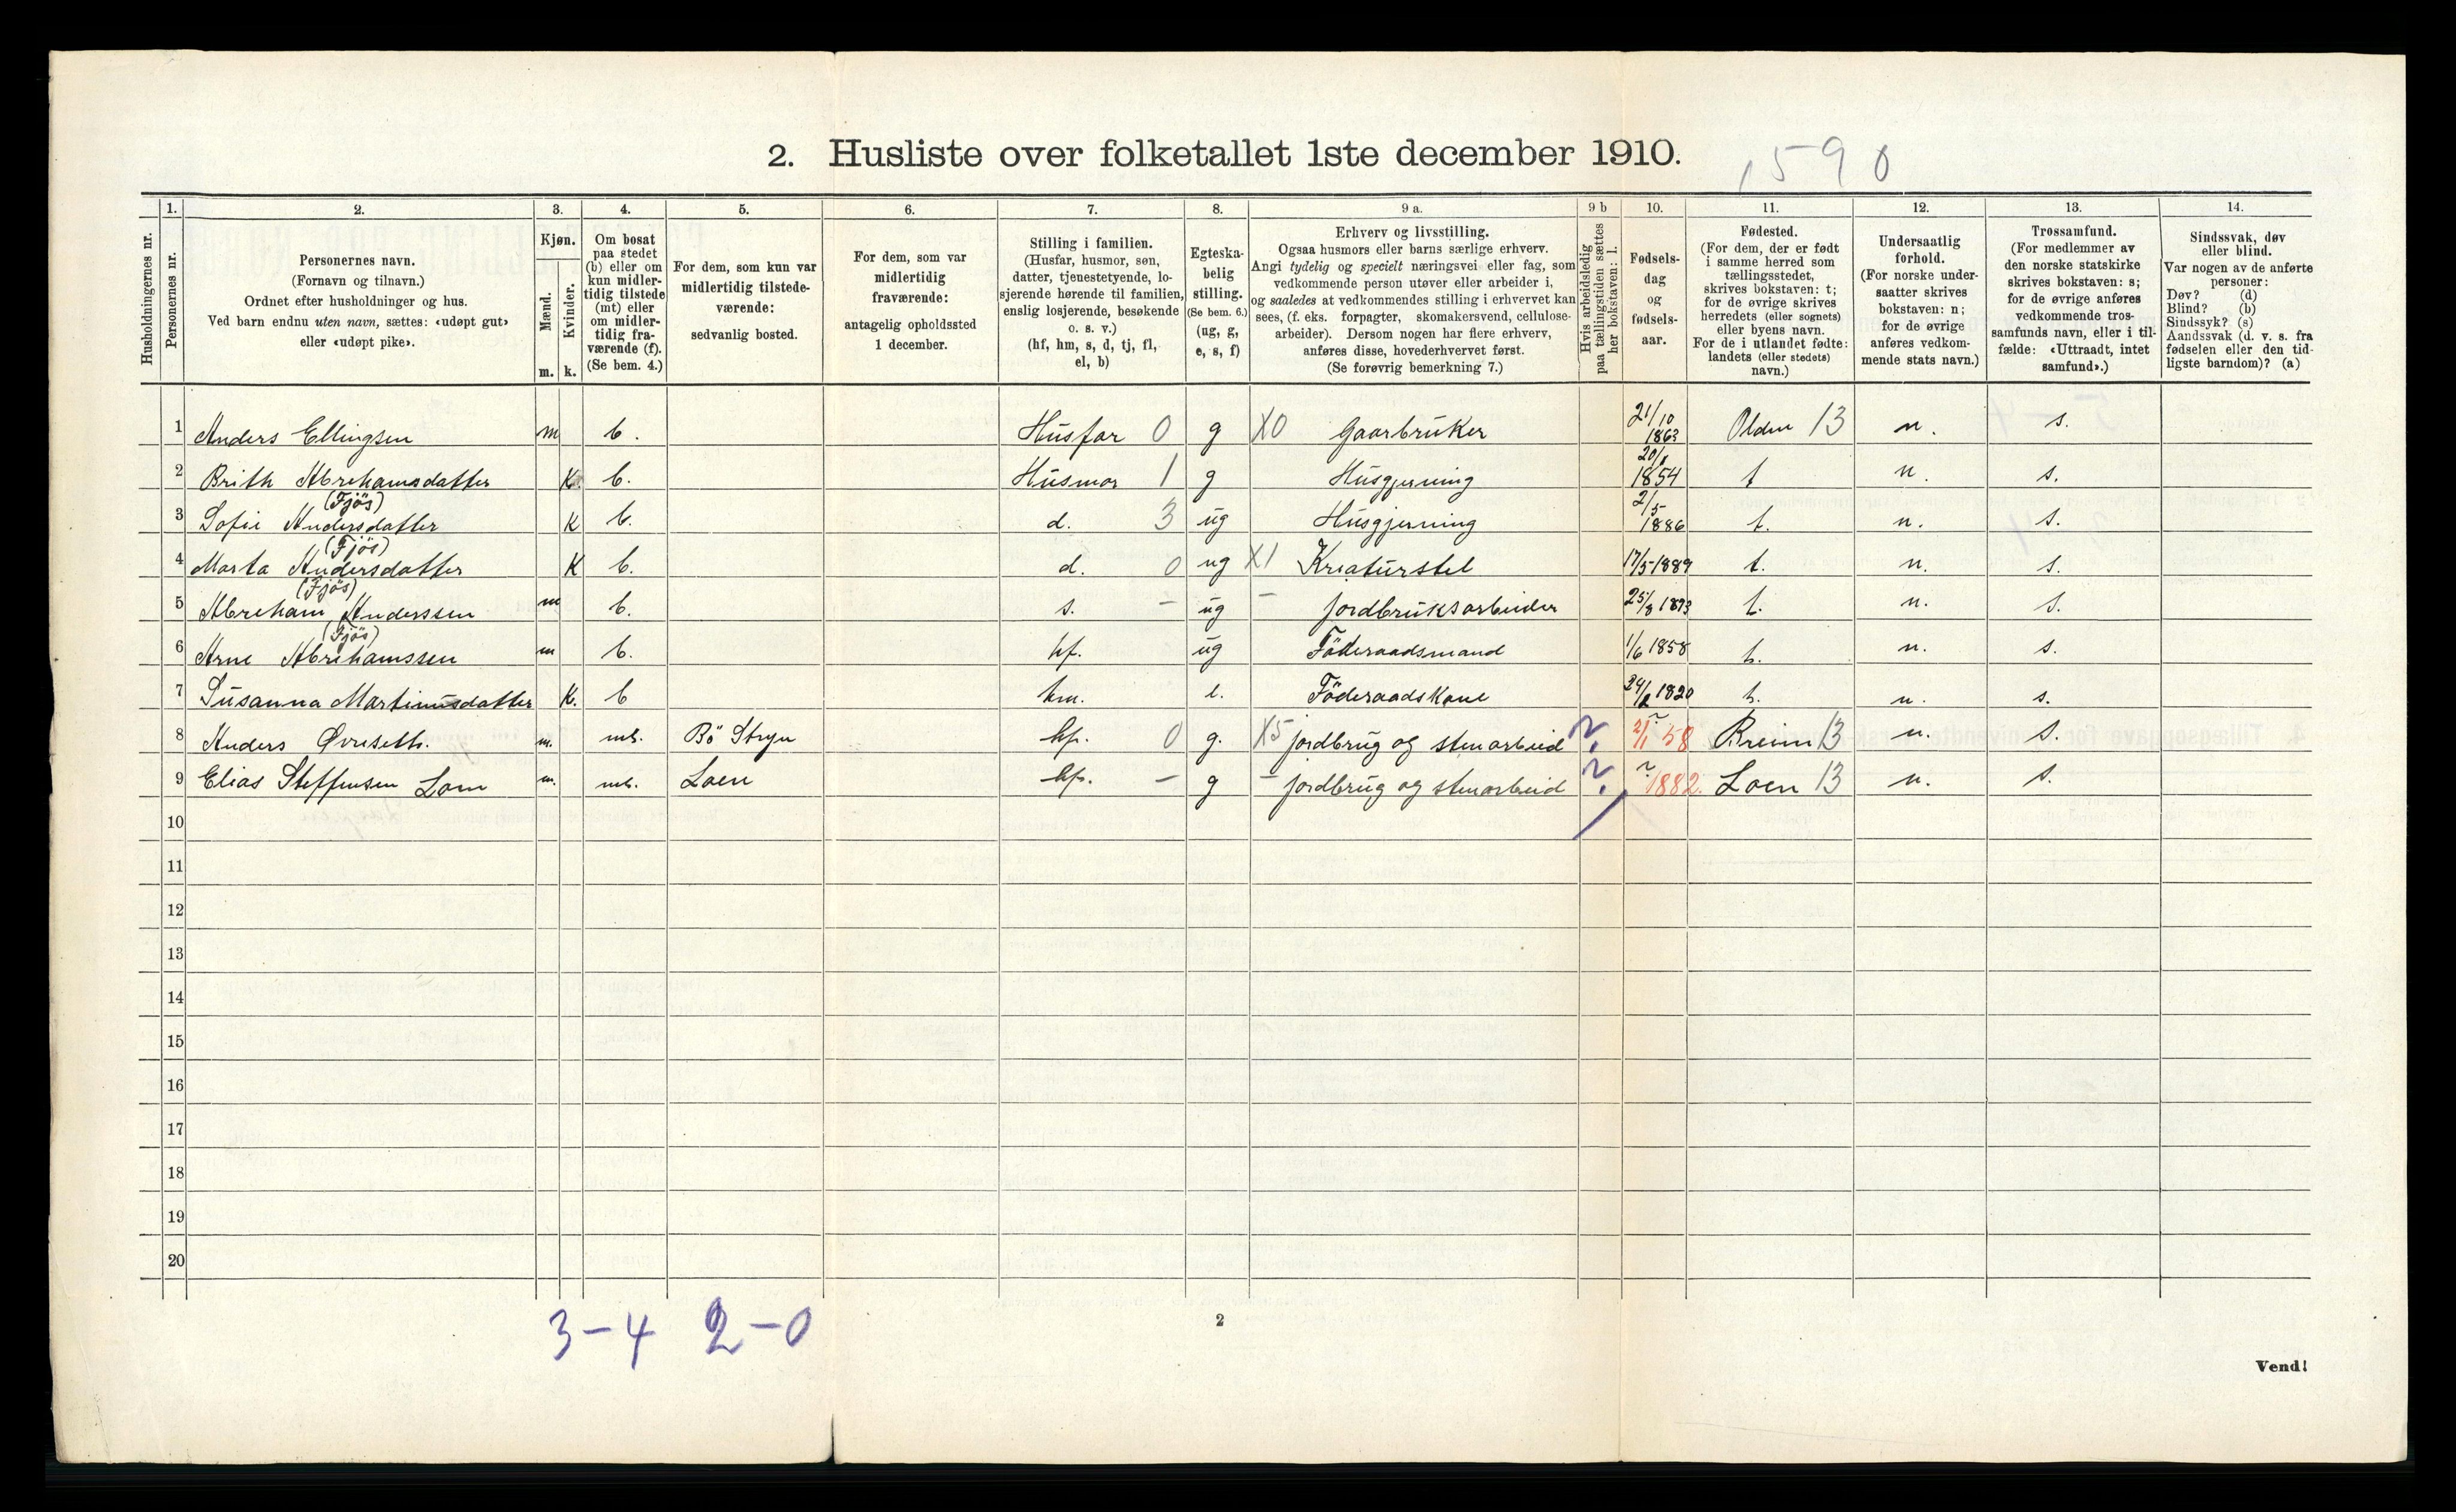 2. Husliste over folketallet 1ste december 1910.
1590
Husholdningernes nr.
1.
Personernes nr.
2.
Personernes navn.
(Fornavn og tilnavn.)
Ordnet efter husholdninger og hus.
Ved barn endnu uten navn, sættes: «udøpt gut»
eller «udøpt pike».
3.
Kjøn.
Mænd.
Kvinder.
m. k.
4.
Om bosat
paa stedet
(b) eller om
kun midler-
tidig tilstede
(mt) eller
om midler-
tidig fra-
værende (f).
(Se bem. 4.)
5.
For dem, som kun var
midlertidig tilstede-
værende:
sedvanlig bosted.
6.
For dem, som var
midlertidig
fraværende:
antagelig opholdssted
1 december.
7.
Stilling i familien.
(Husfar, husmor, søn,
datter, tjenestetyende, lo-
sjerende hørende til familien,
enslig losjerende, besøkende
o. s. v.)
(hf, hm, s, d, tj, fl,
el, b)
8.
Egteska-
belig
stilling.
(Se bem. 6.)
(ug, g,
e, s, f)
9 a.
Erhverv og livsstilling.
Ogsaa husmors eller barns særlige erhverv.
Angi tydelig og specielt næringsvei eller fag, som
vedkommende person utøver eller arbeider i,
og saaledes at vedkommendes stilling i erhvervet kan
sees, (f. eks. forpagter, skomakersvend, cellulose-
arbeider). Dersom nogen har flere erhverv,
anføres disse, hovederhvervet først.
(Se forøvrig bemerkning 7.)
9 b
Hvis arbeidsledig
paa tællingstiden sættes
her bokstaven: l.
10.
Fødsels-
dag
og
fødsels-
aar.
11.
Fødested.
(For dem, der er født
i samme herred som
tællingsstedet,
skrives bokstaven: t;
for de øvrige skrives
herredets (eller sognets)
eller byens navn.
For de i utlandet fødte:
landets (eller stedets)
navn.)
12.
Undersaatlig
forhold.
(For norske under-
saatter skrives
bokstaven: n;
for de øvrige
anføres vedkom-
mende stats navn.)
13.
Trossamfund.
(For medlemmer av
den norske statskirke
skrives bokstaven: s;
for de øvrige anføres
vedkommende tros-
samfunds navn, eller i til-
fælde: «Uttraadt, intet
samfund».)
14.
Sindssvak, døv
eller blind.
Var nogen av de anførte
personer:
Døv? (d)
Blind? (b)
Sindssyk? (s)
Aandssvak (d. v. s. fra
fødselen eller den tid-
ligste barndom)? (a)
1 Anders Ellingsen m b. Husfar 0 g X0 Gaarbruker 21/10 1863 Olden 13 n. s.
2 Brith Abrehamsdatter K. b. Husmor 1 g Husgjerning 20/1 1854 t n. s.
(Fjös)
3 Sofie Andersdatter K b. d. 3 ug Husgjerning 2/5 1886 t. n. s.
(Fjös)
4 Marta Andersdatter K b. d. 0 ug X1 Kreaturstel 17/5 1889 t. n. s.
(Fjös)
5 Abreham Anderssen m b. s. – ug – jordbruksarbeider 25/8 1893 t. n. s.
(Fjös)
6 Arne Abrehamssen m b. hf. ug Föderaadsmand 1/6 1858 t. n. s.
7 Susanna Martinusdatter K. b hm. e. Föderaadskone 24/2 1820 t. n. s.
8 Anders Øvreseth. m. mt. Bö Stryn hf. 0 g. X5 jordbrug og stenarbeid ? 2/1 58 Breim 13 n. s.
9 Elias Steffensen Loen m. mt. Loen hf. – g – jordbrug og stenarbeid ? 1882. Loen 13 n. s.
10
11
12
13
14
15
16
17
18
19
20
3–4 2–0
2
Vend!